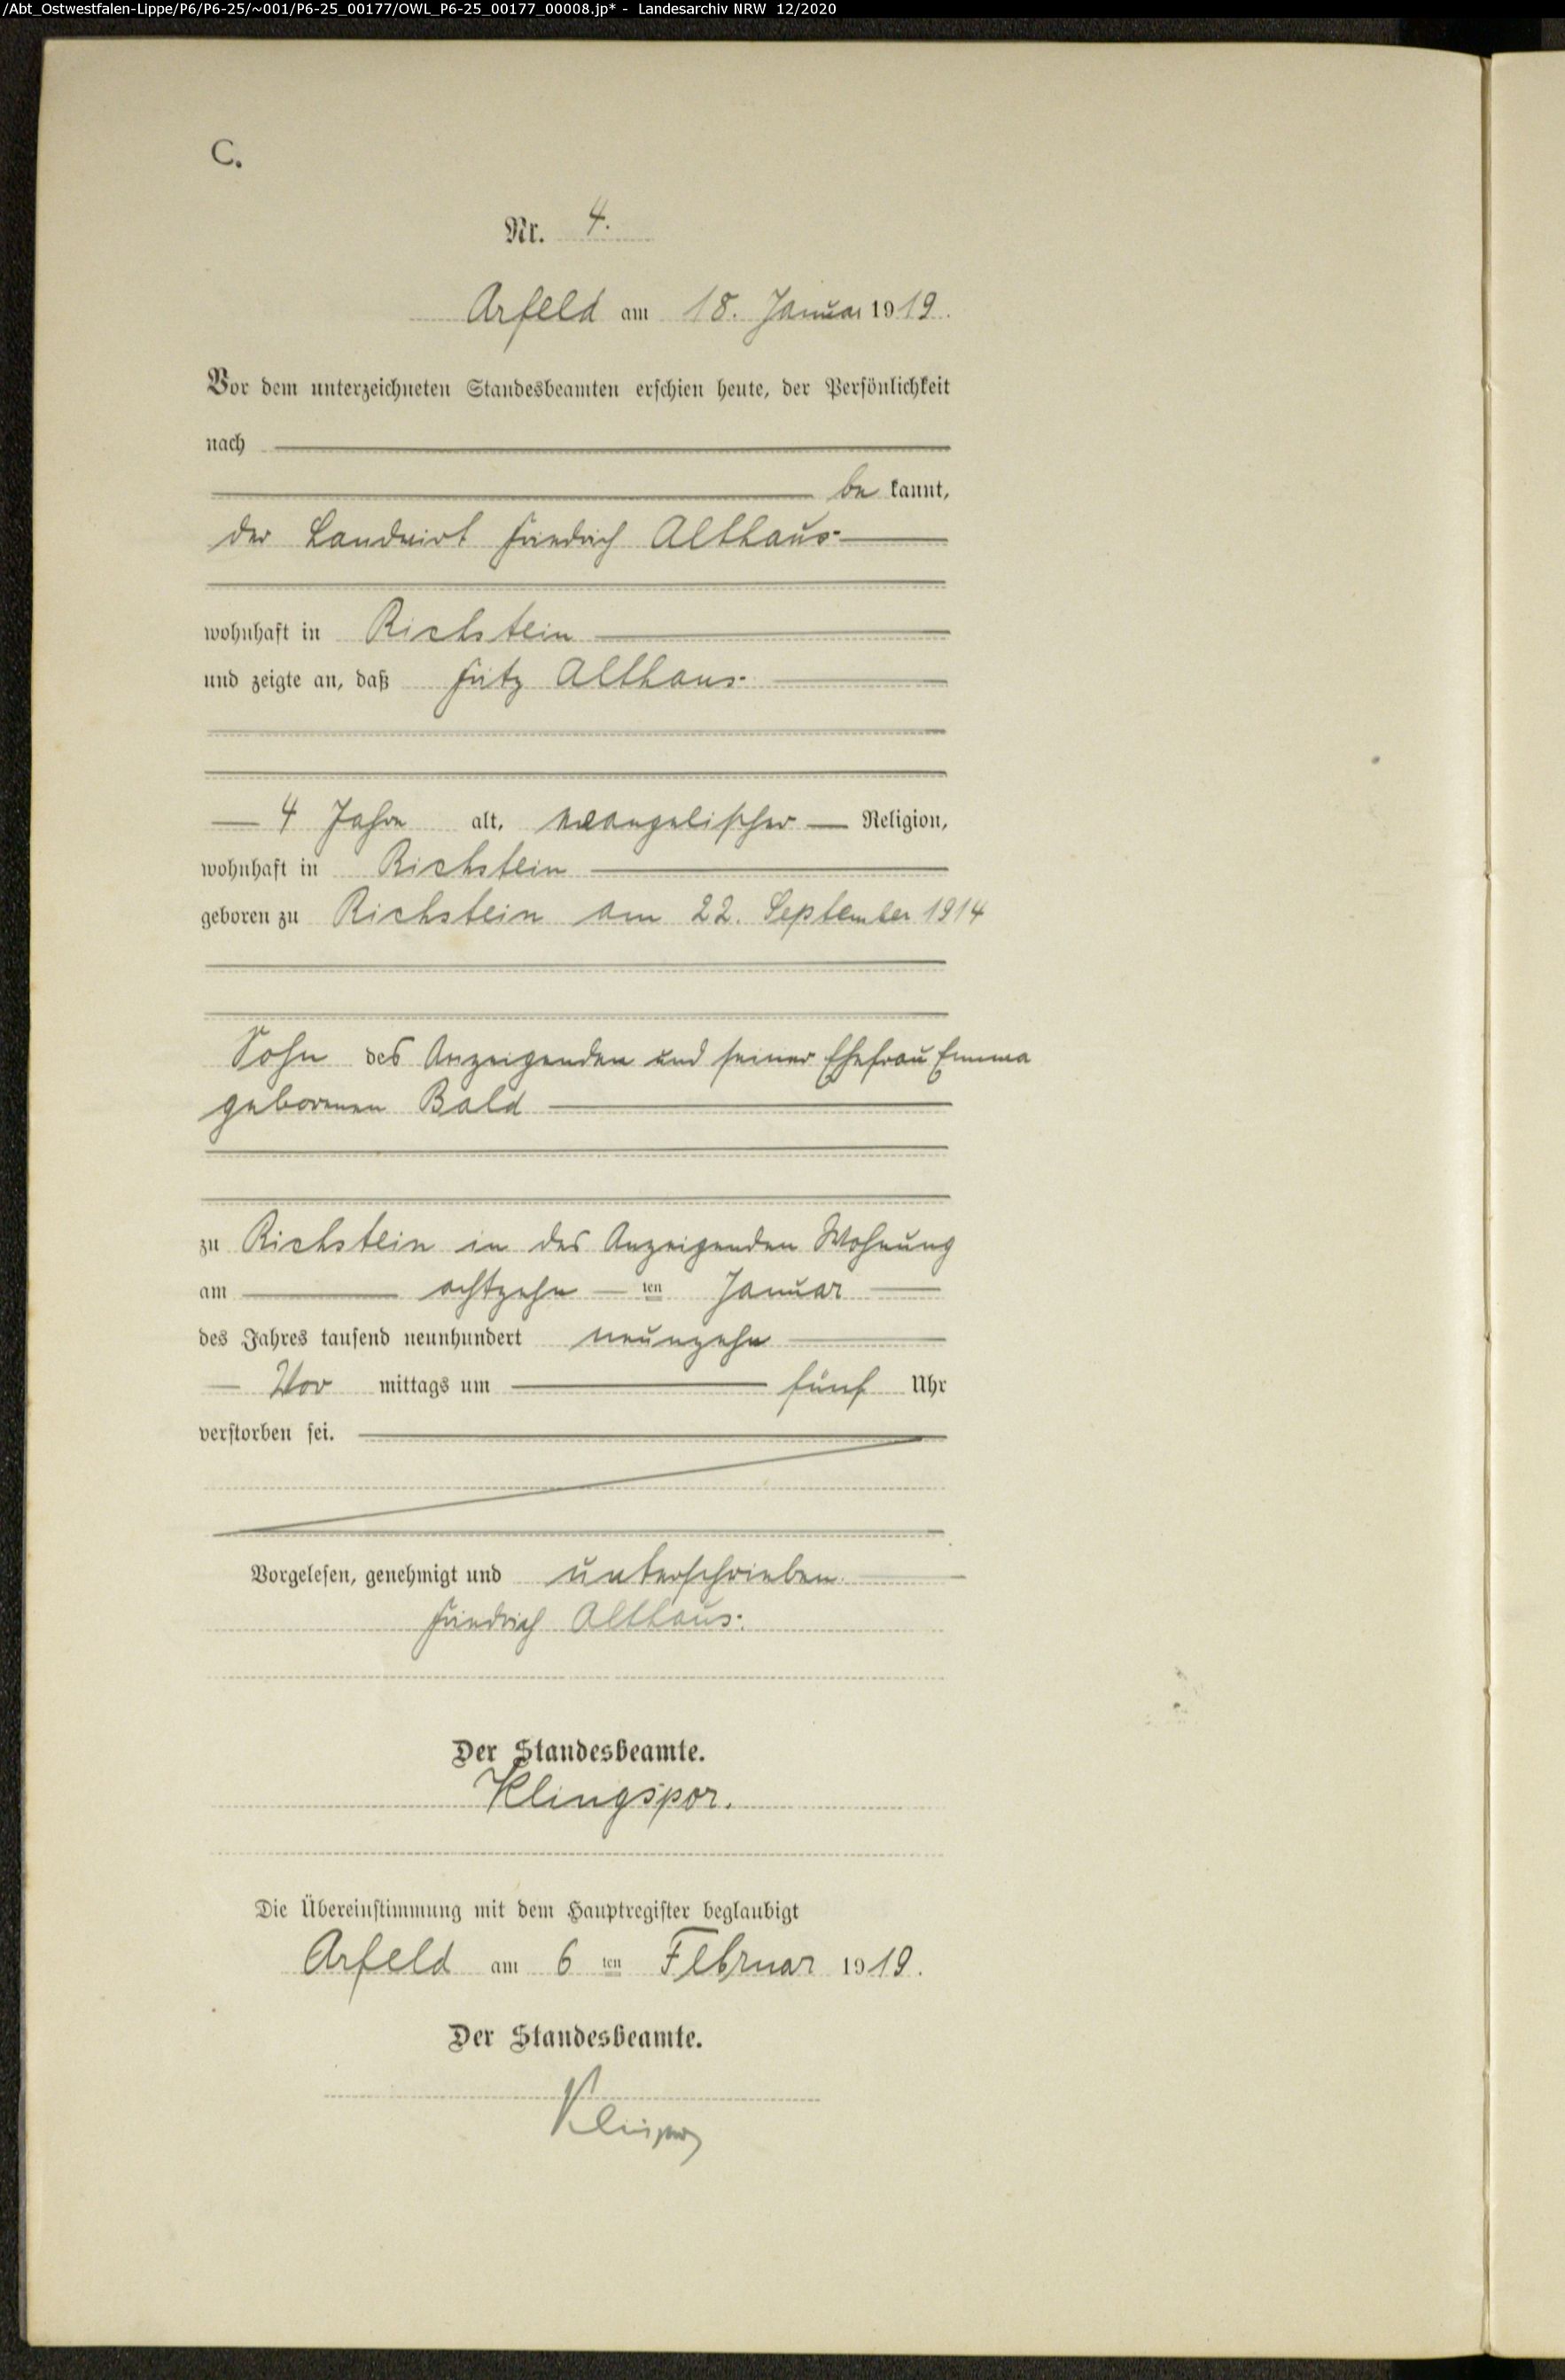 /Abt_Ostwestfalen-Lippe/P6/P6-25/~001/P6-25_00177/OWL_P6-25_00177_00008.jp* - Landesarchiv NRW 12/2020
C.
Nr. 4.
Arfeld am 18. Januar 1919.
Vor dem unterzeichneten Standesbeamten erschien heute, der Persönlichkeit
nach
be kannt,
der Landwirt Friedrich Althaus
wohnhaft in Richstein
und zeigte an, daß Fritz Althaus
4 Jahre alt, evangelischer Religion,
wohnhaft in Richstein
geboren zu Richstein am 22. September 1914
Sohn des Anzeigenden und seiner Ehefrau Emma
geborenen Bald
zu Richstein in des Anzeigenden Wohnung
am achtzehn ten Januar
des Jahres tausend neunhundert neunzehn
Vor mittags um fünf Uhr
verstorben sei.
Vorgelesen, genehmigt und unterschrieben
Friedrich Althaus.
Der Standesbeamte.
Klingspor.
Die Übereinstimmung mit dem Hauptregister beglaubigt
Arfeld am 6 ten Februar 1919.
Der Standesbeamte.
Klingspor